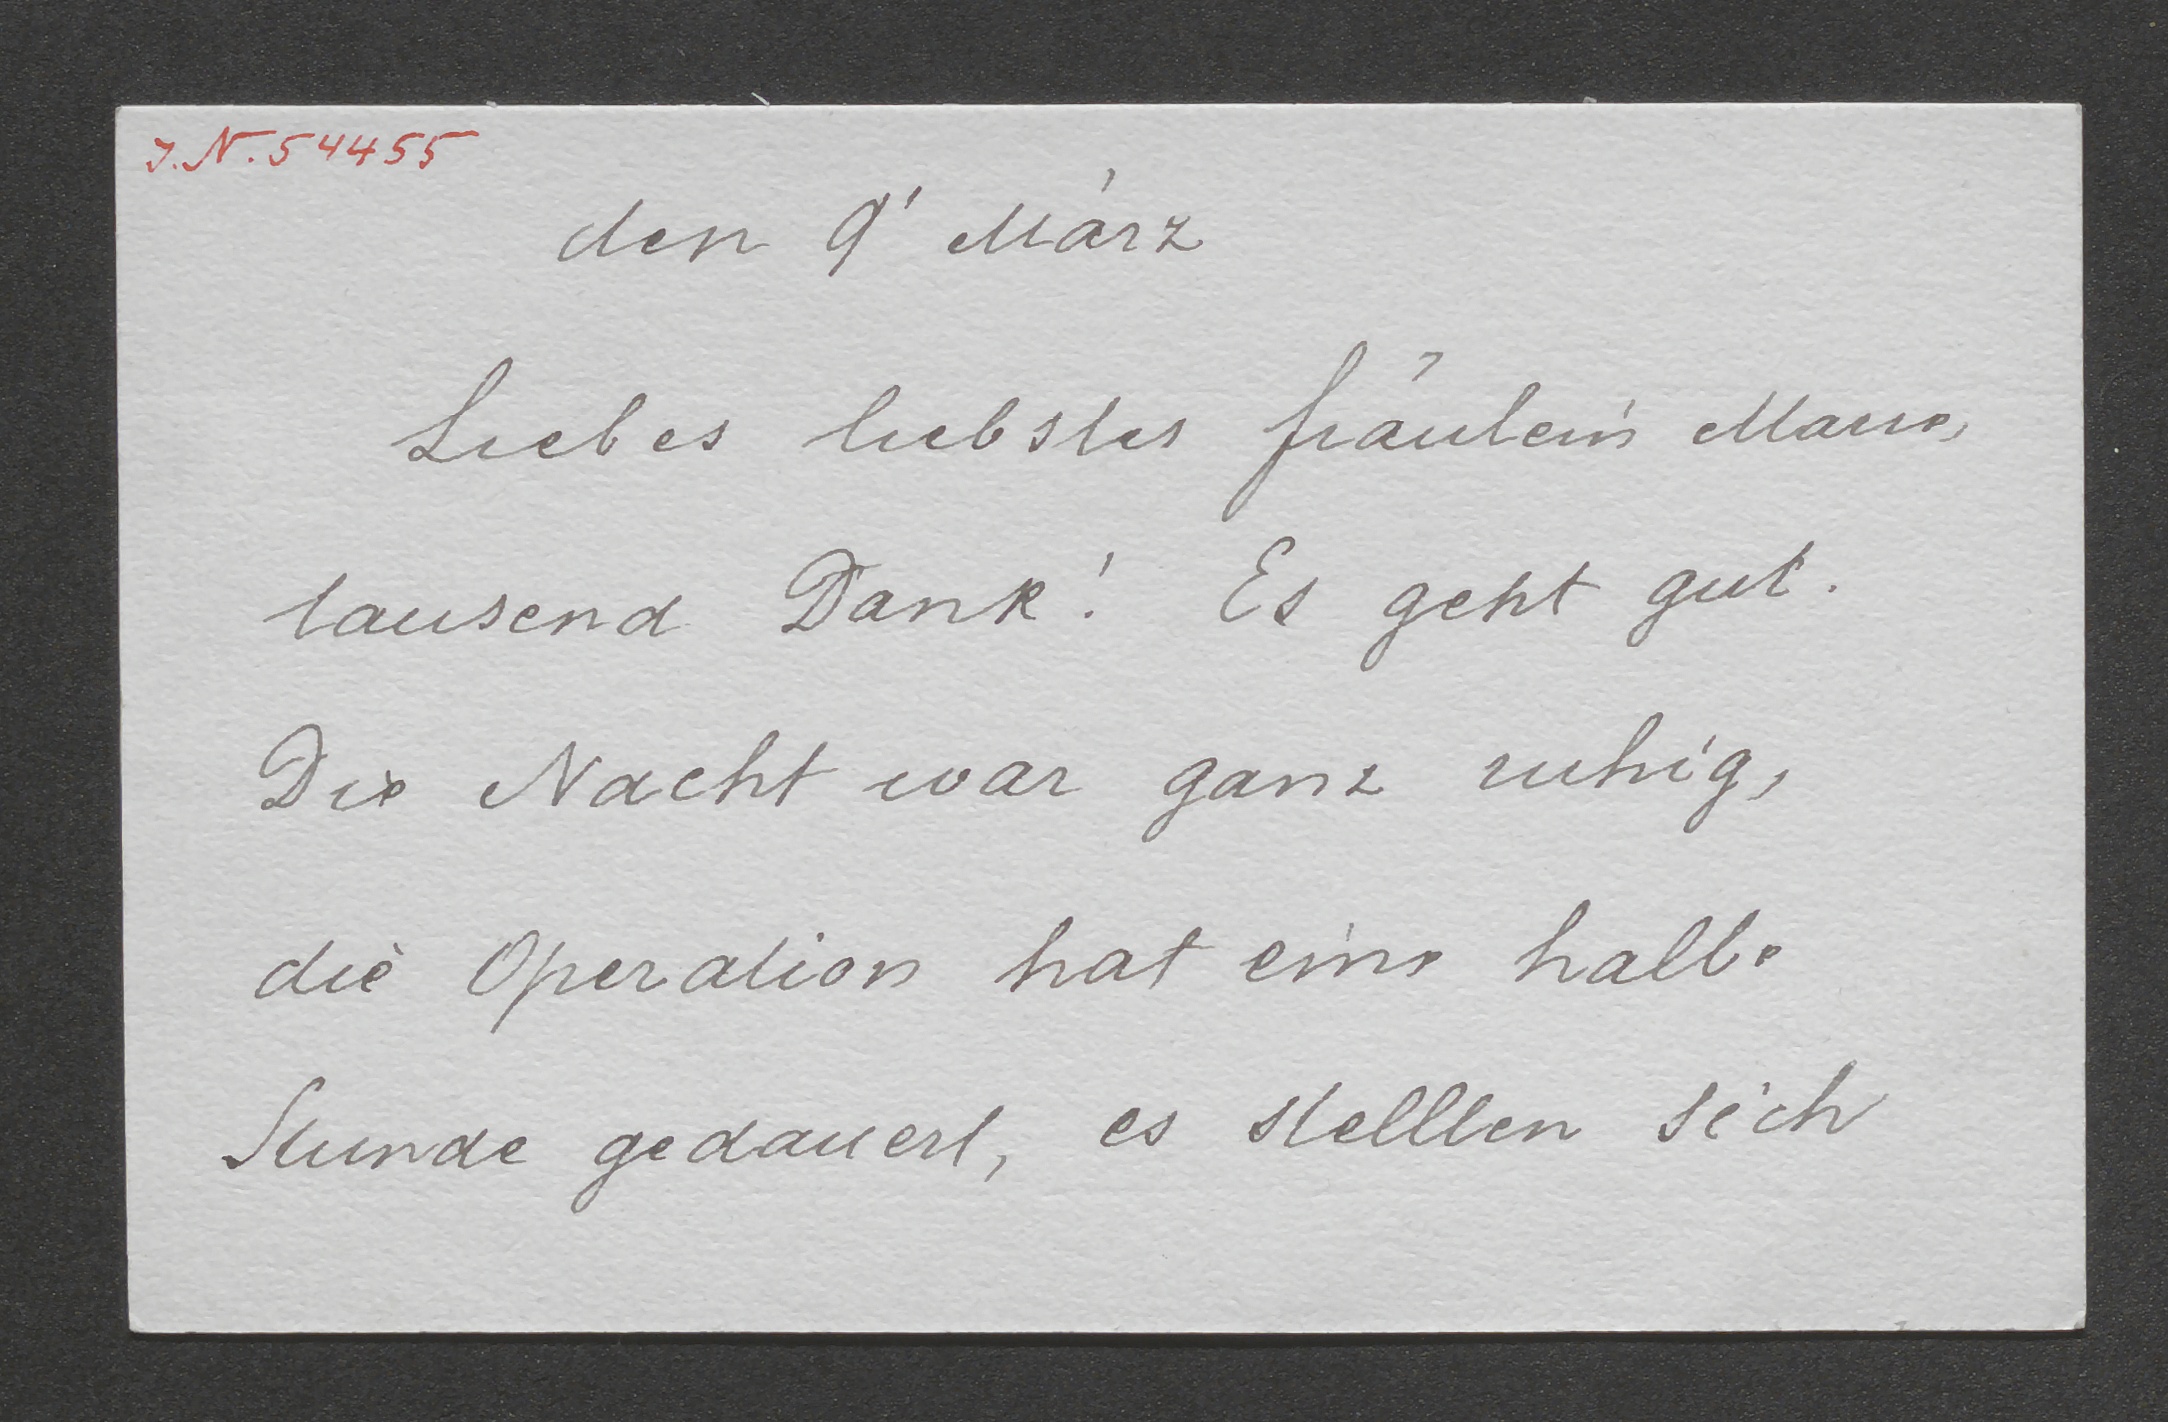 J.N. 54455
den 9' März
Liebes liebstes Fräulein Marie,
tausend Dank! Es geht gut.
Die Nacht war ganz ruhig,
die Operation hat eine halbe
Stunde gedauert, es stellten sich